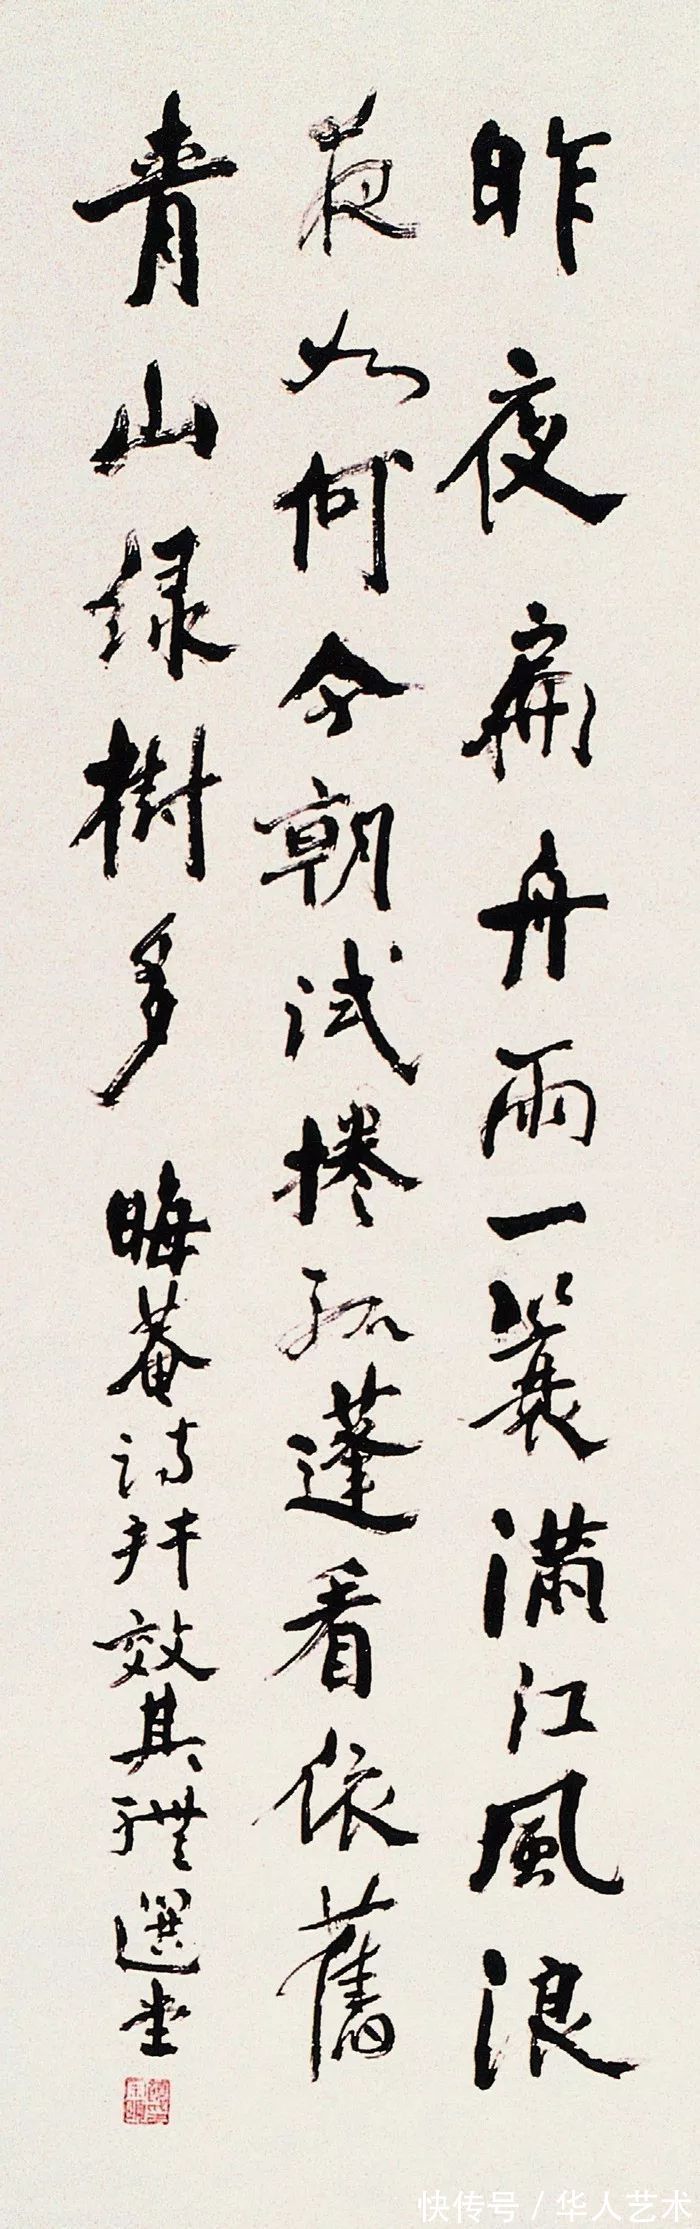 昨夜扁舟雨一蓑滿江風浪
夜如何今朝試捲孤蓬看依舊
青山綠樹多 晦菴詩拜效其體選堂
快传号 / 华人艺术